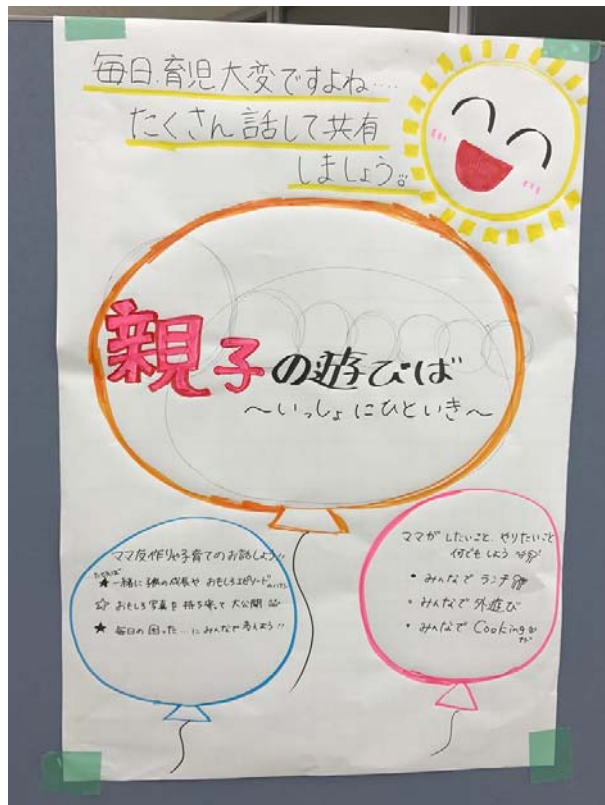 毎日育児大変ですよね....
たくさん話して共有
しましょう。
親子の遊びば
～いっしょにひといき～
ママ友作りや子育てのお話しよう!!
たとえば
★一緒に子供の成長や おもしろエピソード
☆ おもしろ写真を持ち寄って大公開
★ 毎日の困った...にみんなで考えよう!!
ママが したいこと、やりたいこと
何でも しよう
・みんなで ランチ
・みんなで 外遊び
・みんなで Cooking
など